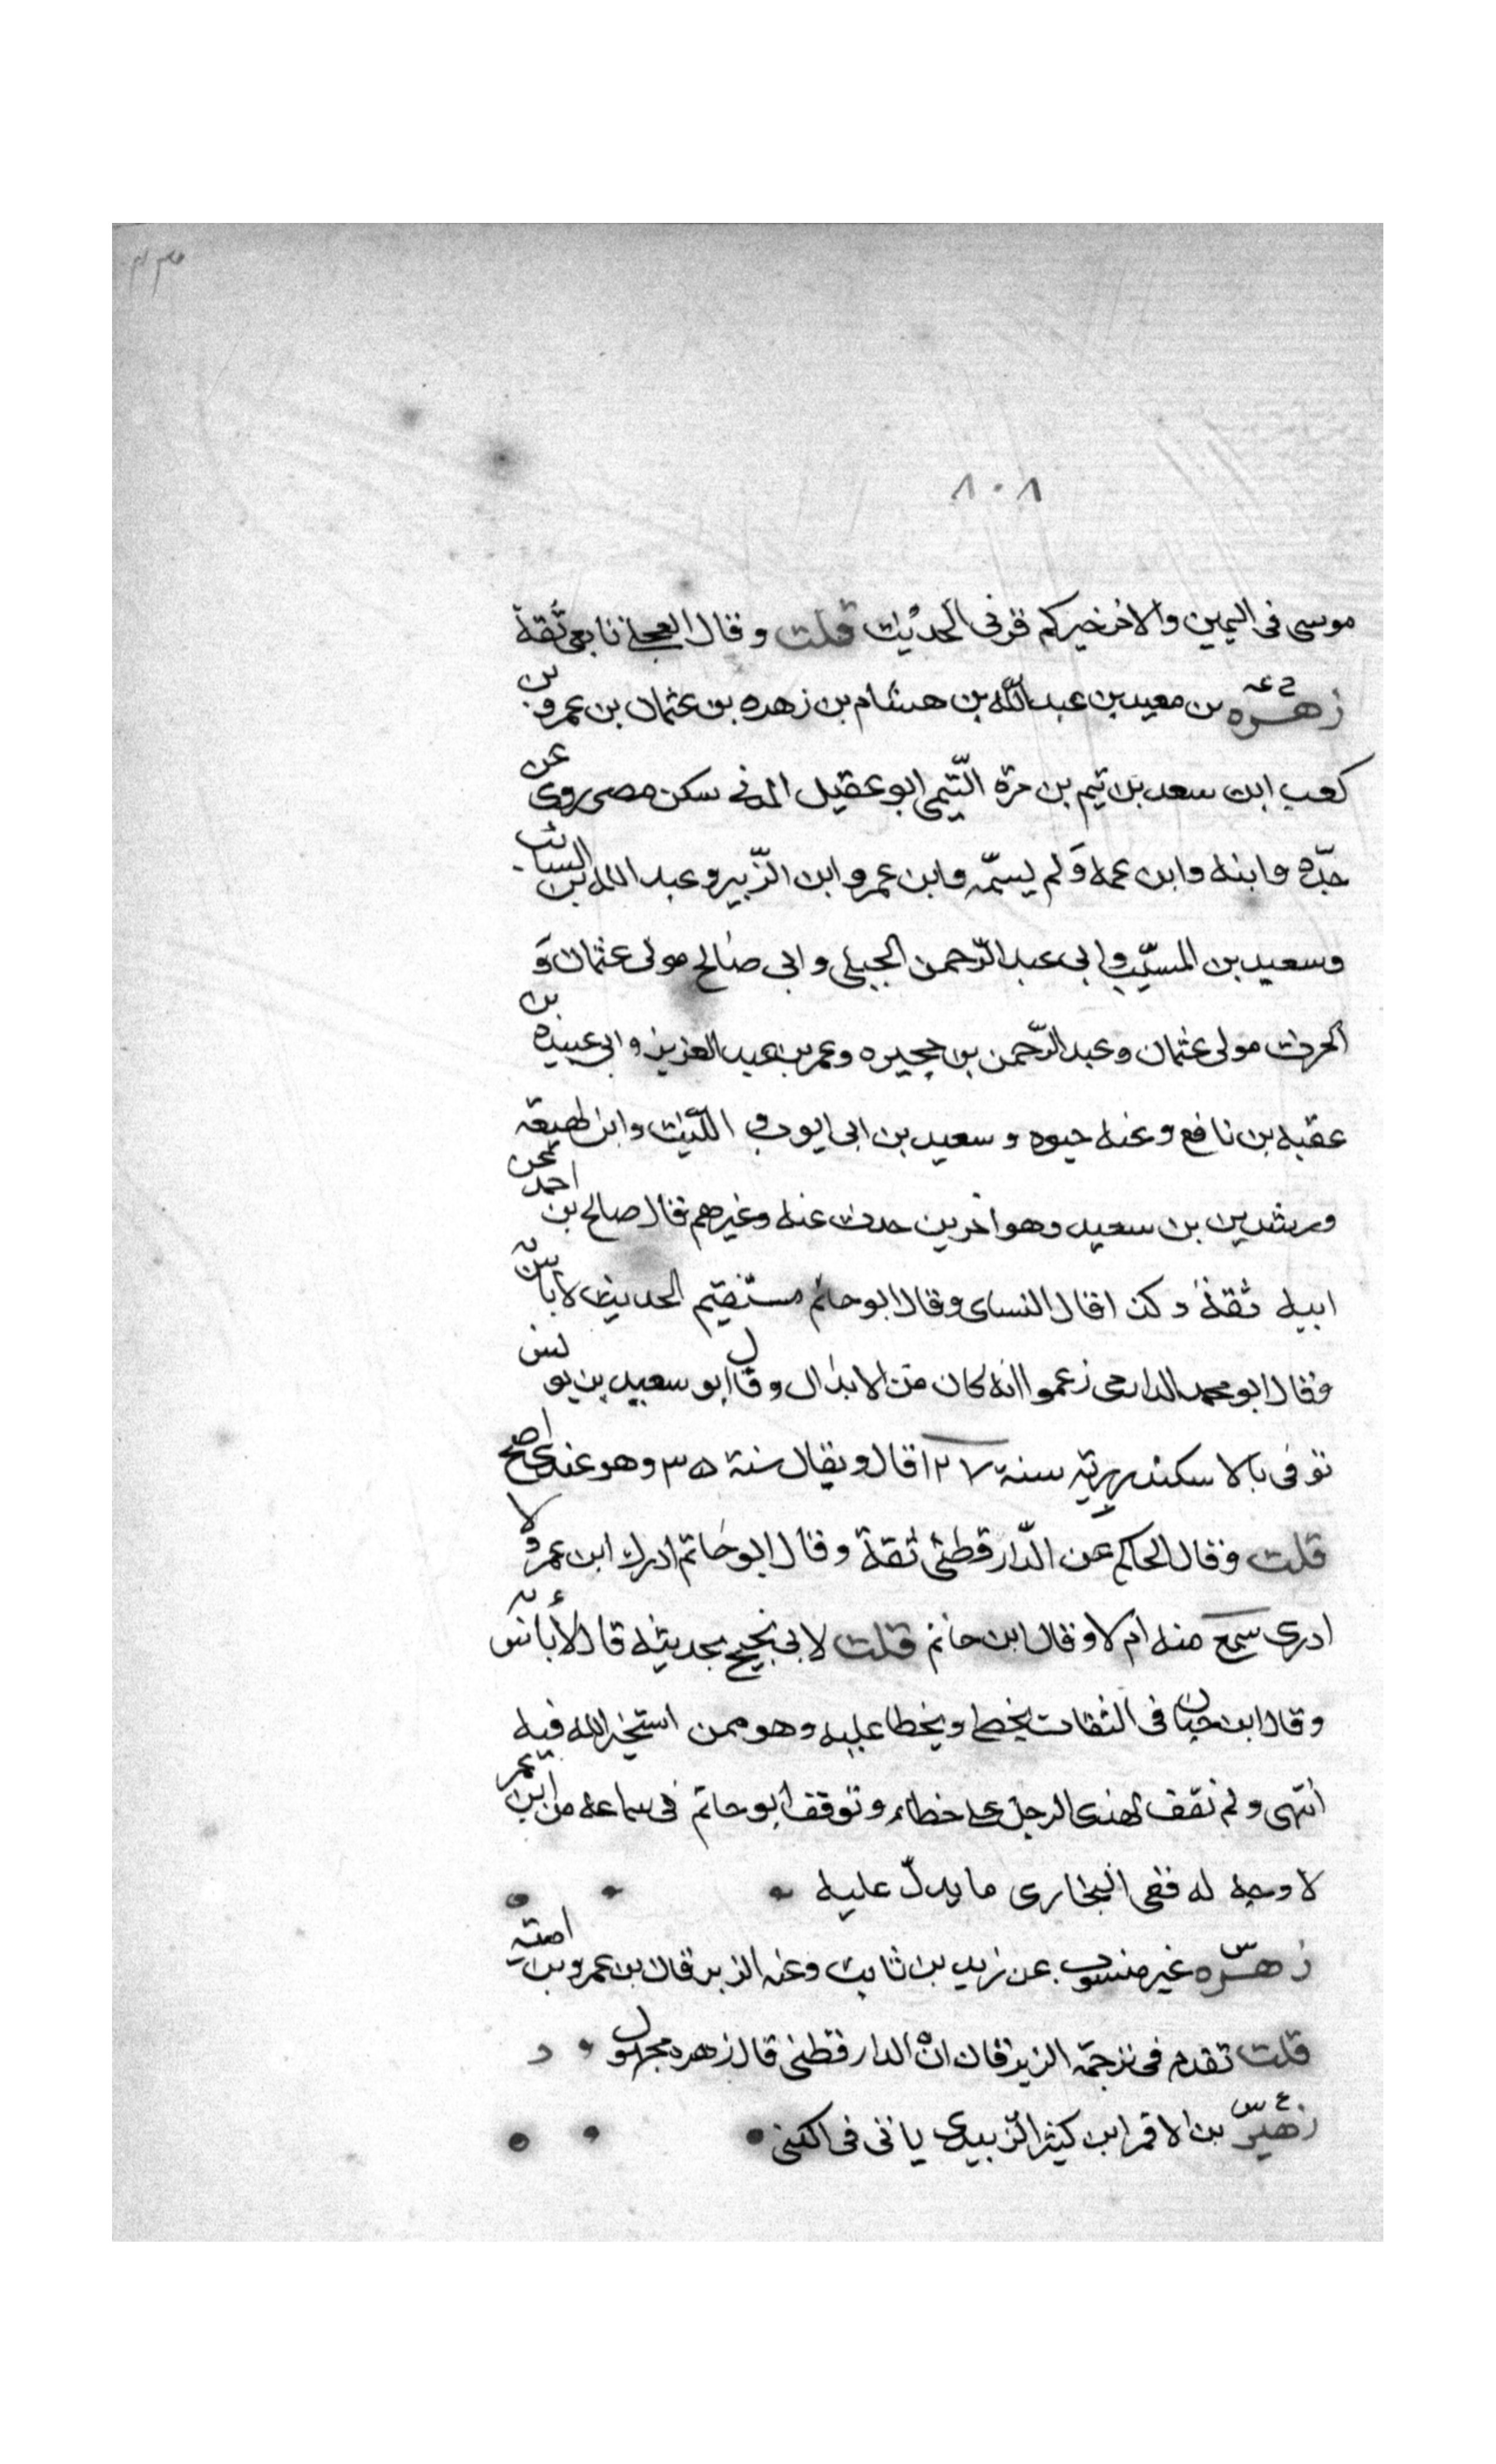 ٨٠٨
موسى فى اليمين والاخر خيركم قرنى الحديث قلت وقال العجلي تابعى ثقة
زهره بن معبد بن عبدالله بن هشام بن زهره بن عثمان بن عمرو بن
كعب ابن سعد بن تيم بن مرة التيمى ابو عقيل المدنى سكن مصر روى عن
جده وابنه وابن عمه ولم يسمه وابن عمر وابن الزبير وعبد الله بن السائب
وسعيد بن المسيب وابى عبد الرحمن الجبلى وابى صالح مولى عثمان و
الحرث مولى عثمان وعبد الرحمن بن حجيره وعمر بن عبد العزيز وابى عبيده بن
عقبه بن نافع وعنه حيوه وسعيد بن ابى ايوب و الليث وابن لهيعه
ورشدين بن سعيد وهو اخر من حدث عنه وغيرهم قال صالح بن احمد عن
ابيه ثقة وكذا قال النساى وقال ابو حاتم مستقيم الحديث لا باس به
وقال ابو محمد الدارمى زعموا انه كان من الابدال وقال ابو سعيد بن يونس
توفى بالاسكندريه سنة ١٢٧ قال ويقال سنة ٣٥ وهو عندى اصح
قلت وقال الحاكم عن الدارقطنى ثقة وقال ابو حاتم ادرك ابن عمر ولا
ادرى سمع منه ام لا وقال ابن حاتم قلت لابى يحتج بحديثه قال لا باس به
وقال ابن حبان فى الثقات يخطى ويخطا عليه وهو ممن استخير الله فيه
انتهى ولم نقف لهذا الرجل على خطاء وتوقف ابو حاتم فى سماعه من ابن عمر
لا وجه له ففى البخارى ما يدل عليه
زهره غير منسوب عن زيد بن ثابت وعنه الزبرقان بن عمرو بن اميه
قلت تقدم فى ترجمة الزبرقان ان الدارقطنى قال زهره مجهول
زهير بن الاقمر ابن كثير الزبيدى ياتى فى الكنى